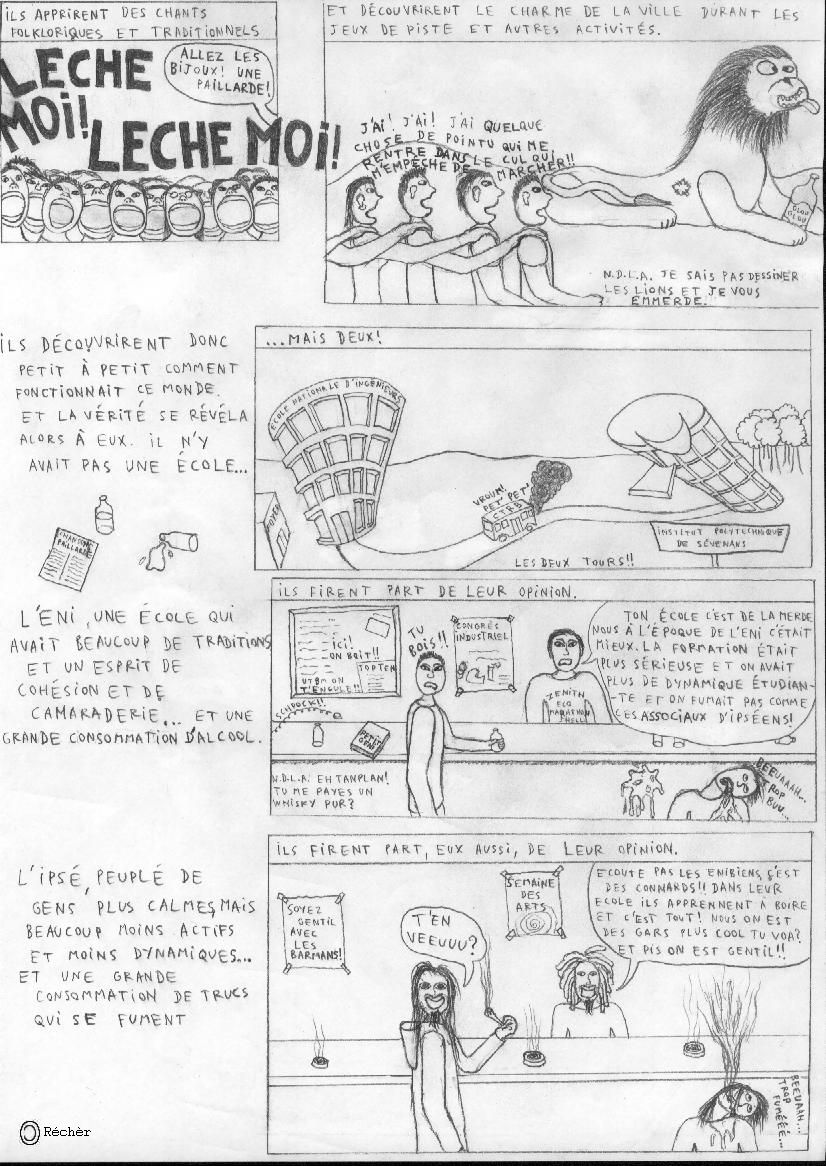 ILS APPRIRENT DES CHANTS
FOLKLORIQUES ET TRADITIONNELS
ALLEZ LES
BIJOUX! UNE
PAILLARDE!
LECHE
MOI!
LECHE MOI!
ET DÉCOUVRIRENT LE CHARME DE LA VILLE DURANT LES
JEUX DE PISTE ET AUTRES ACTIVITÉS.
J'AI! J'AI! J'AI QUELQUE
CHOSE DE POINTU QUI ME
RENTRE DANS LE CUL QUI
M'EMPÊCHE DE MARCHER!!
GLOU
GLOU
N.D.L.A. JE SAIS PAS DESSINER
LES LIONS ET JE VOUS
EMMERDE.
ILS DÉCOUVRIRENT DONC
PETIT À PETIT COMMENT
FONCTIONNAIT CE MONDE.
ET LA VÉRITÉ SE RÉVÉLA
ALORS À EUX. IL N'Y
AVAIT PAS UNE ÉCOLE...
CHANSONS
PAILLARDES
...MAIS DEUX!
ÉCOLE NATIONALE D'INGÉNIEURS
FOYER
VROUM!
PET' PET'
CTRB
INSTITUT POLYTECHNIQUE
DE SÉVENANS
LES DEUX TOURS!!
L'ENI, UNE ÉCOLE QUI
AVAIT BEAUCOUP DE TRADITIONS
ET UN ESPRIT DE
COHÉSION ET DE
CAMARADERIE... ET UNE
GRANDE CONSOMMATION D'ALCOOL.
ILS FIRENT PART DE LEUR OPINION.
ICI!
ON BOIT!!
TOP TEN
UTBM ON
T'ENCULE!!
TU
BOIS!!
CONGRÈS
INDUSTRIEL
ZENITH
ECO
MARATHON
SHELL
TON ÉCOLE C'EST DE LA MERDE
NOUS À L'ÉPOQUE DE L'ENI C'ÉTAIT
MIEUX. LA FORMATION ÉTAIT
PLUS SÉRIEUSE ET ON AVAIT
PLUS DE DYNAMIQUE ÉTUDIAN-
-TE ET ON FUMAIT PAS COMME
CES ASSOCIAUX D'IPSÉENS!
SCHROCK!!
PETIT
GENI
N.D.L.A. EH TANPLAN!
TU ME PAYES UN
WHISKY PUR?
BEEUAAAH...
TROP
BUU...
L'IPSÉ, PEUPLÉ DE
GENS PLUS CALMES, MAIS
BEAUCOUP MOINS ACTIFS
ET MOINS DYNAMIQUES...
ET UNE GRANDE
CONSOMMATION DE TRUCS
QUI SE FUMENT
ILS FIRENT PART, EUX AUSSI, DE LEUR OPINION.
SOYEZ
GENTIL
AVEC
LES
BARMANS!
T'EN
VEEUUU?
SEMAINE
DES
ARTS
ECOUTE PAS LES ENIBIENS, C'EST
DES CONNARDS!! DANS LEUR
ECOLE ILS APPRENNENT À BOIRE
ET C'EST TOUT! NOUS ON EST
DES GARS PLUS COOL TU VOA?
ET PIS ON EST GENTIL!!
BEEUAAH...
TROP
FUMÉÉÉ...
Réchèr